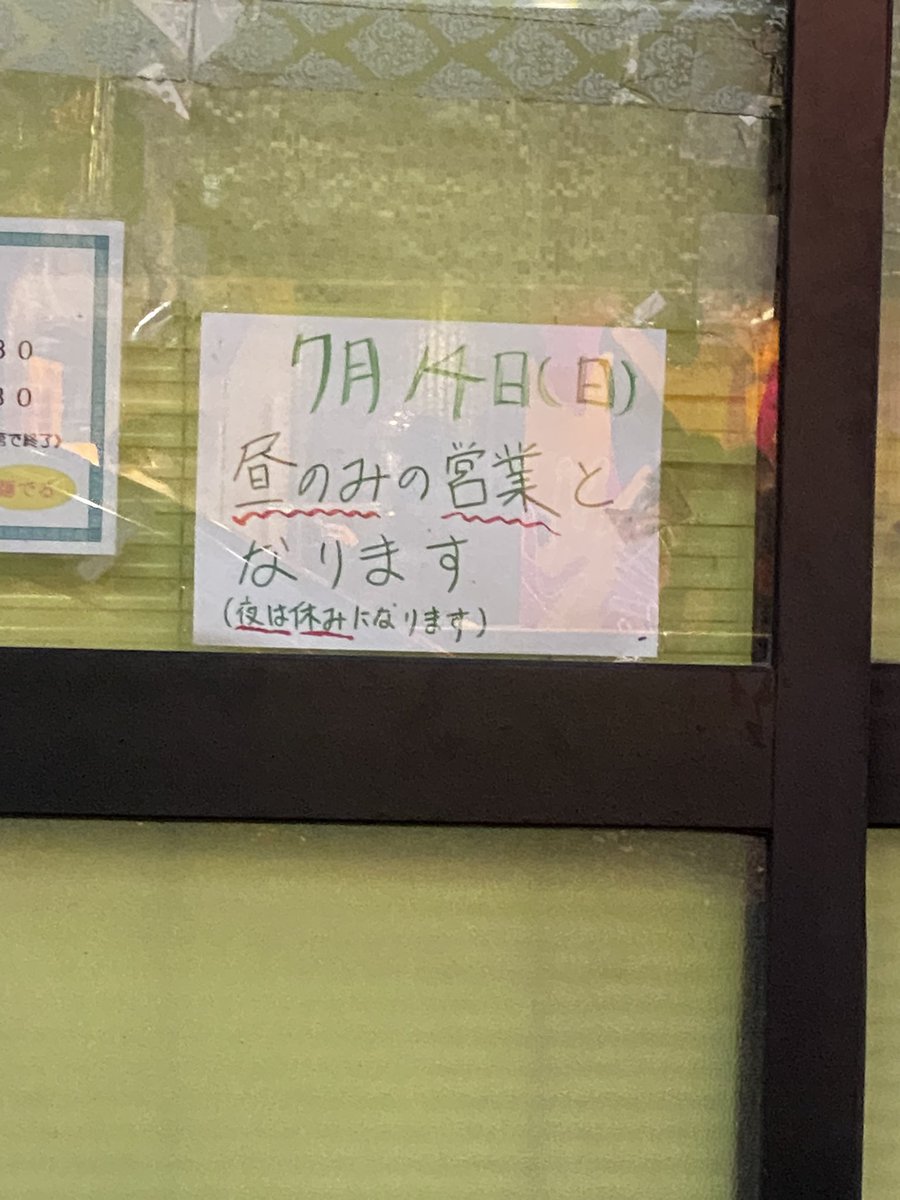 30
30
で終了)
麺でる
7月14日(日)
昼のみの営業と
なります
(夜は休みになります)